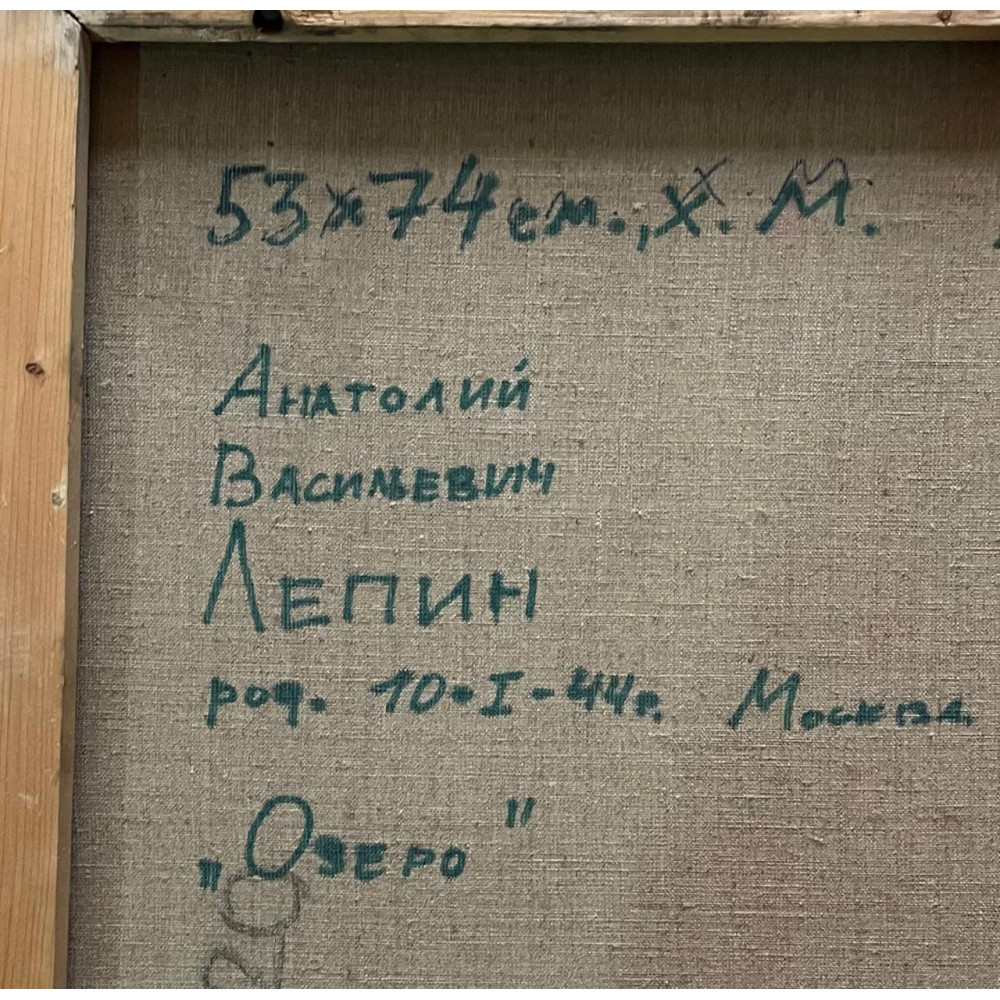 53х74 см., х. М.
Анатолий
Васильевич
Лепин
род. 10·I-44г. Москва
„Озеро"